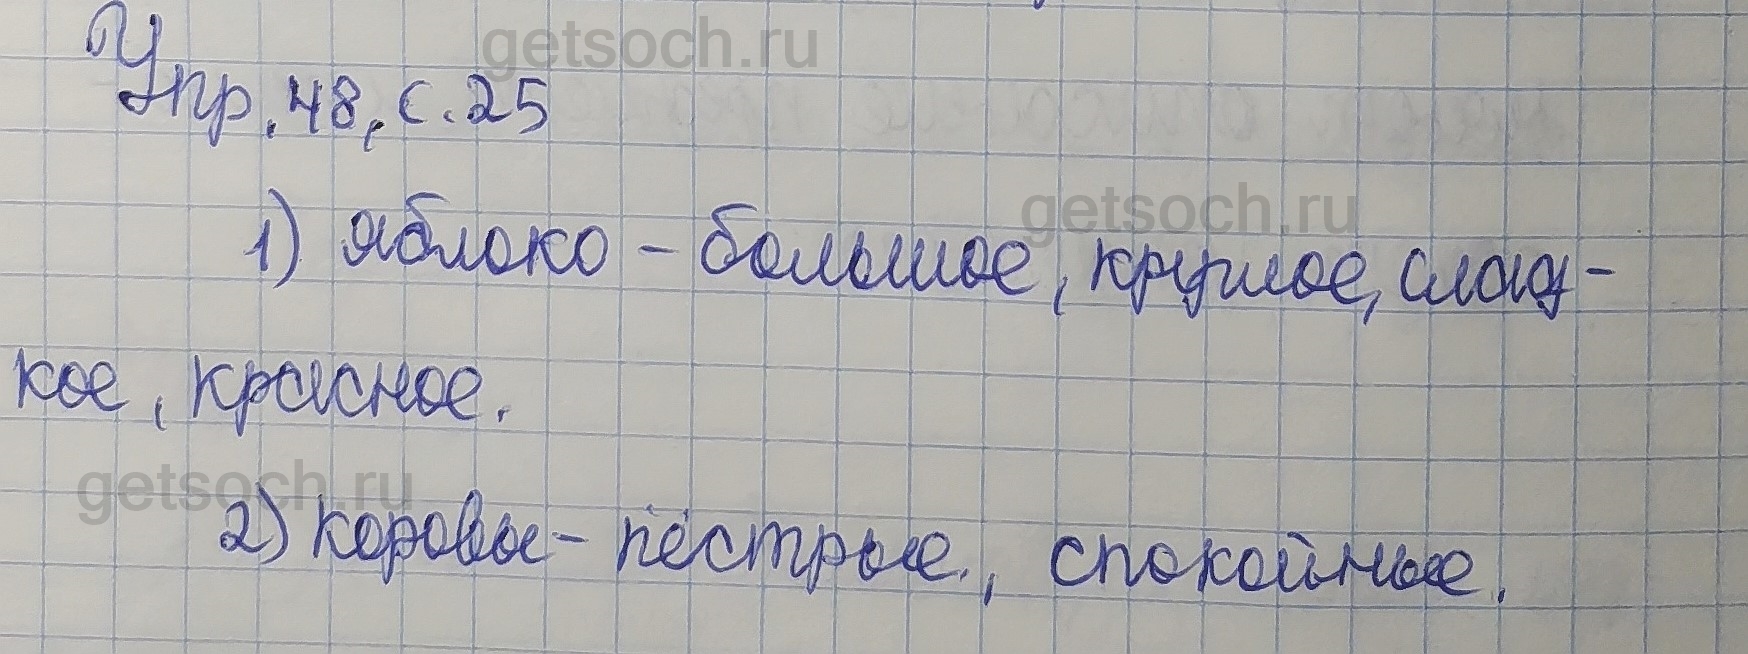 getsoch.ru
Упр. 48, с. 25
getsoch.ru
1) яблоко - большое, круглое, слад-
кое, красное.
getsoch.ru
2) коровы - пёстрые, спокойные.